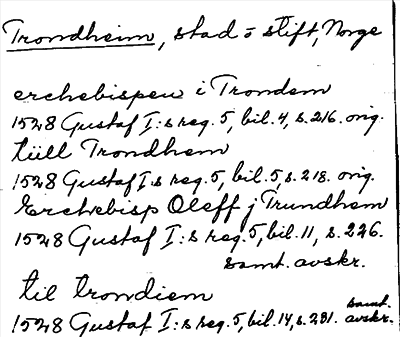 Trondheim, stad o stift, Norge
erchebispen i Trondem
1528 Gustaf I:s reg. 5, bil. 4, s. 216. orig.
tüll Trondhem
1528 Gustaf I:s reg. 5, bil. 5, s. 218. orig.
Erchebisp Oleff j Trundhem
1528 Gustaf I:s reg. 5, bil. 11, s. 226.
samt. avskr.
til trondiem
1528 Gustaf I:s reg. 5, bil. 14, s. 231. samt. avskr.